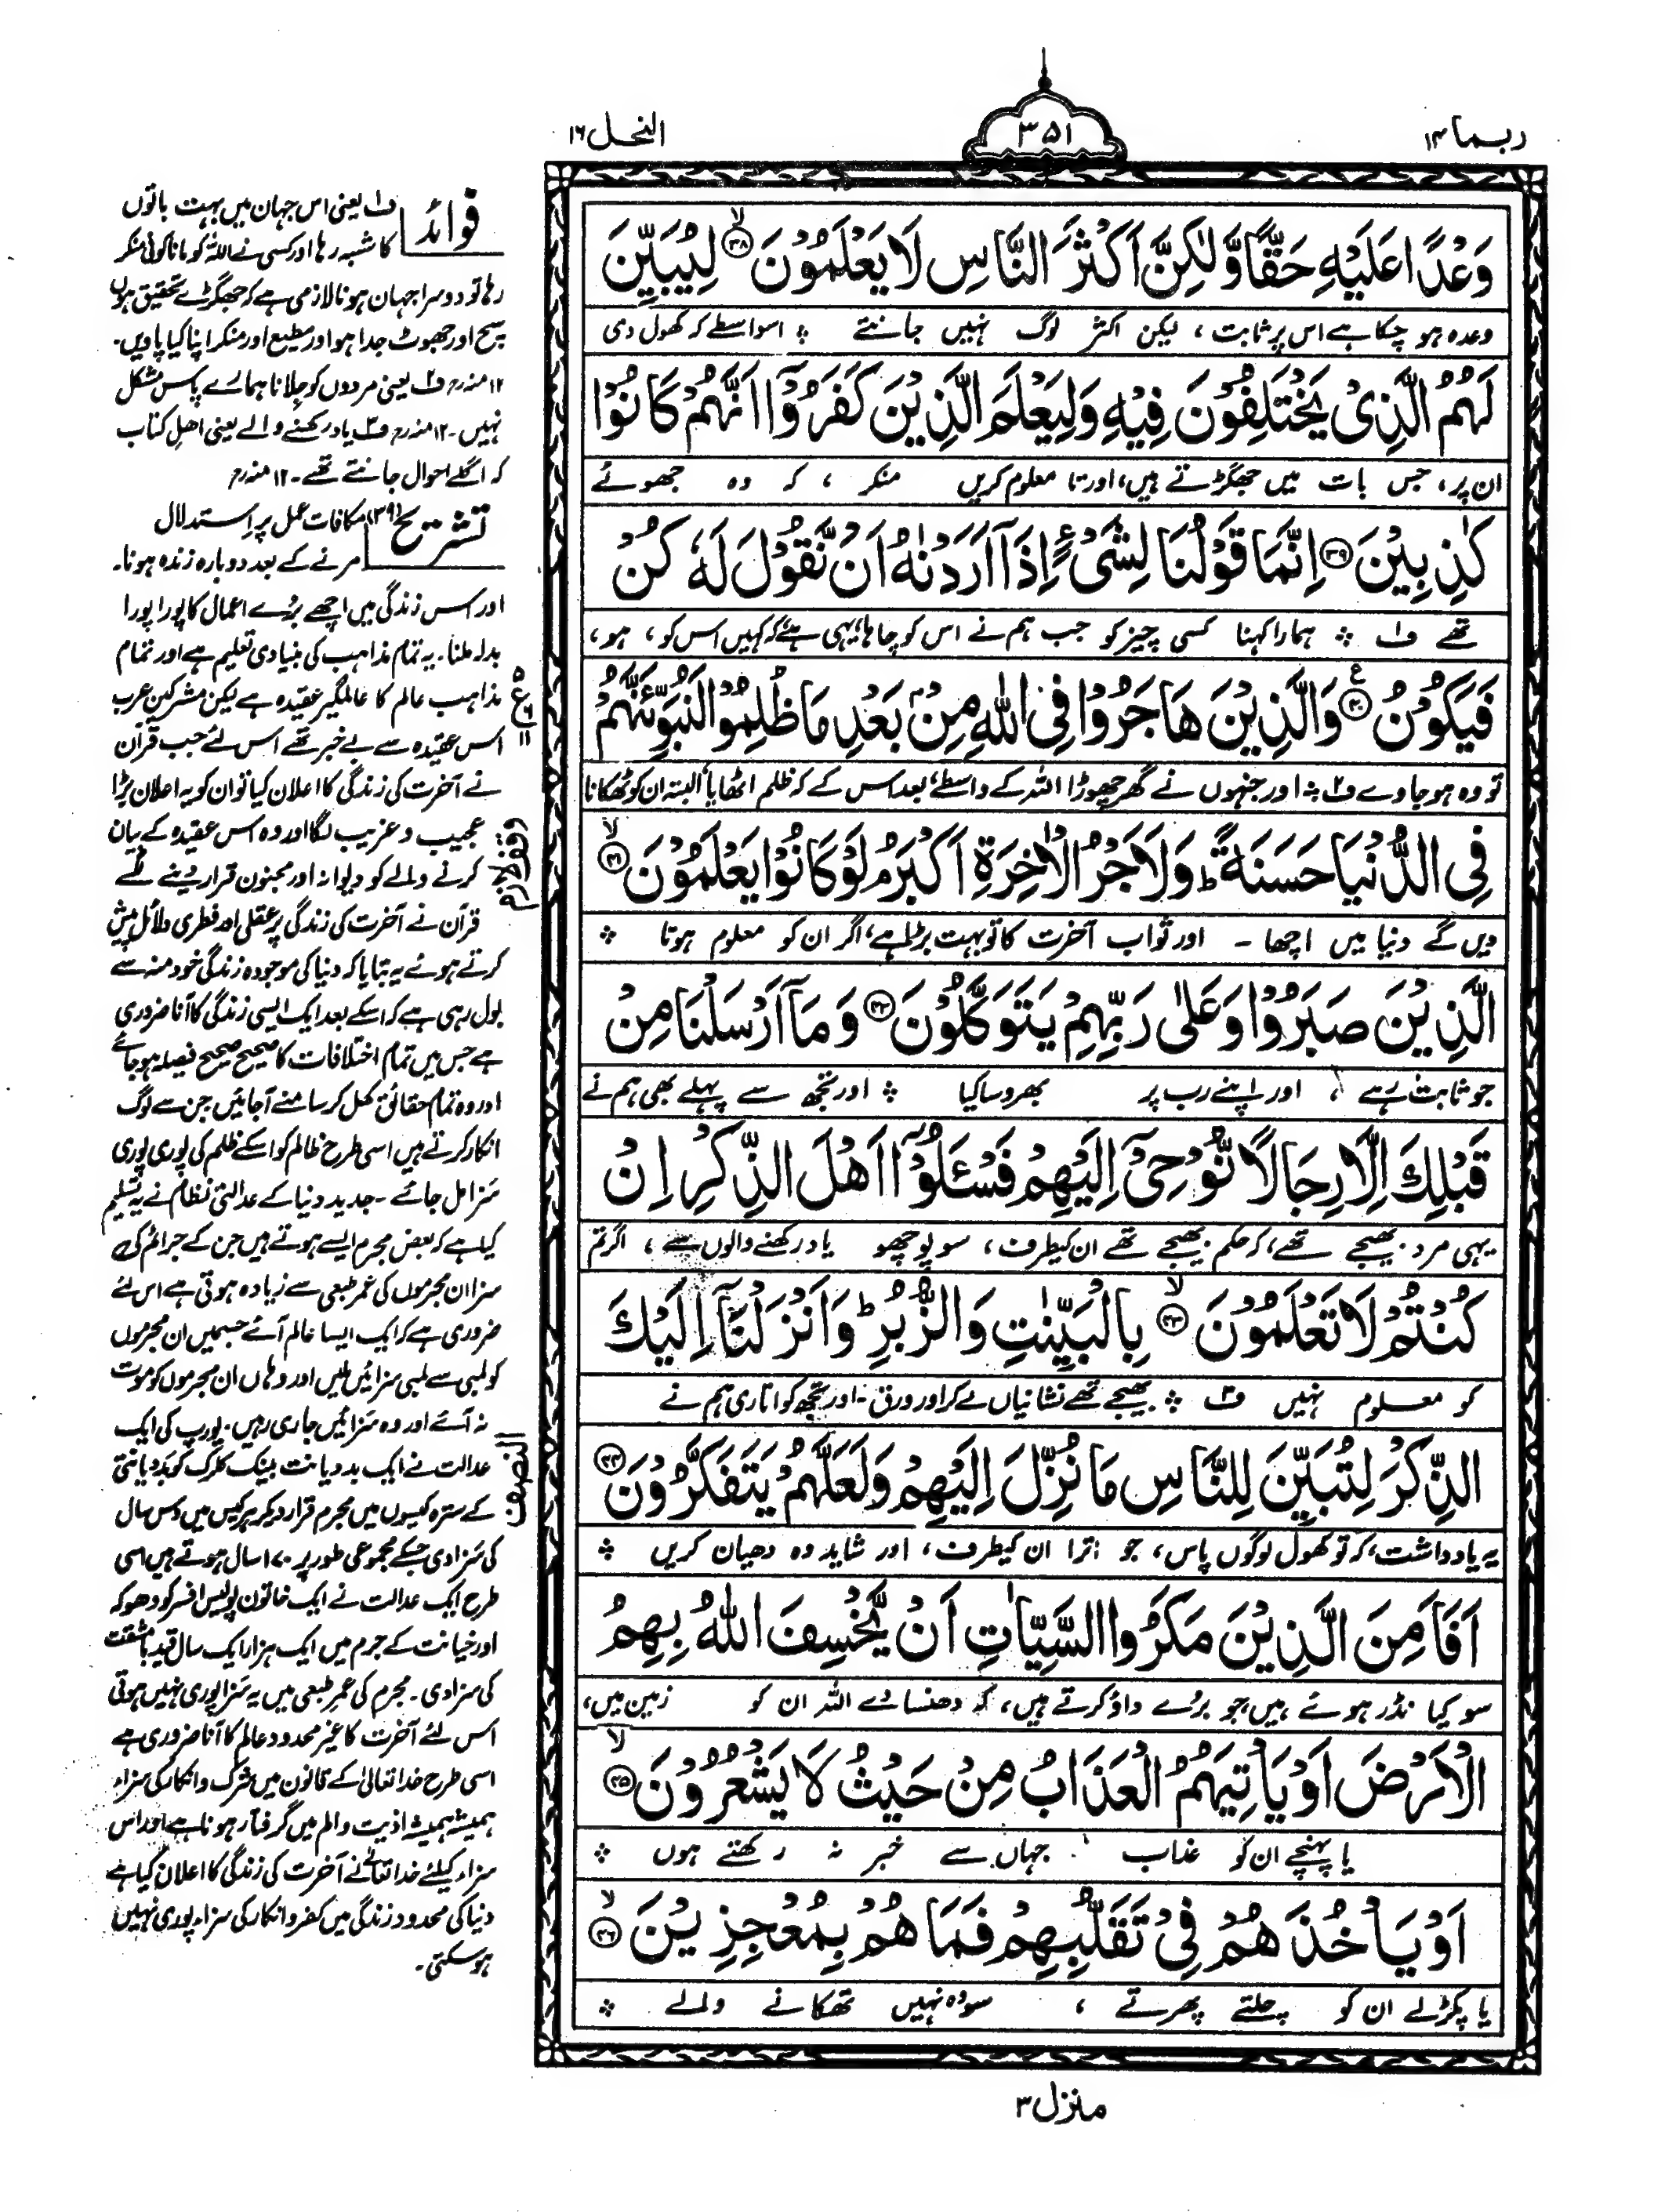 ربما ۱۴
۳۵۱
النحل ۱۶
وَعْدًا عَلَيْهِ حَقًّا وَّلٰكِنَّ اَكْثَرَ النَّاسِ لَا يَعْلَمُوْنَ ﴿۳۸﴾ۙ لِيُبَيِّنَ
وعدہ ہو چکا ہے اس پر ثابت ، لیکن اکثر لوگ نہیں جانتے ؞ اسواسطے کہ کھول دی
لَهُمُ الَّذِىْ يَخْتَلِفُوْنَ فِيْهِ وَلِيَعْلَمَ الَّذِيْنَ كَفَرُوْٓا اَنَّهُمْ كَانُوْا
ان پر، جس بات میں جھگڑتے ہیں، اور تا معلوم کریں منکر ، کہ وہ جھوٹے
كٰذِبِيْنَ ﴿۳۹﴾ اِنَّمَا قَوْلُنَا لِشَىْءٍ اِذَآ اَرَدْنٰهُ اَنْ نَّقُوْلَ لَهٗ كُنْ
تھے ف۱ ؞ ہمارا کہنا کسی چیز کو جب ہم نے اس کو چاہا، یہی ہے، کہ کہیں اس کو، ہو،
فَيَكُوْنُ ﴿۴۰﴾ۧ وَالَّذِيْنَ هَاجَرُوْا فِى اللّٰهِ مِنْۢ بَعْدِ مَا ظُلِمُوْا لَنُبَوِّئَنَّهُمْ
تو وہ ہو جاوے ف۲ ؞ اور جنہوں نے گھر چھوڑا اللہ کے واسطے، بعد اس کے کہ ظلم اٹھایا، البتہ ان کو ٹھکانا
فِى الدُّنْيَا حَسَنَةً ؕ وَلَاَجْرُ الْاٰخِرَةِ اَكْبَرُ ۘ لَوْ كَانُوْا يَعْلَمُوْنَ ﴿۴۱﴾ۙ
دیں گے دنیا میں اچھا ۔ اور ثواب آخرت کا تو بہت بڑا ہے، اگر ان کو معلوم ہوتا ؞
الَّذِيْنَ صَبَرُوْا وَعَلٰى رَبِّهِمْ يَتَوَكَّلُوْنَ ﴿۴۲﴾ وَمَآ اَرْسَلْنَا مِنْ
جو ثابت رہے ، اور اپنے رب پر بھروسا کیا ؞ اور تجھ سے پہلے بھی ہم نے
قَبْلِكَ اِلَّا رِجَالًا نُّوْحِىْٓ اِلَيْهِمْ فَسْـَٔلُوْٓا اَهْلَ الذِّكْرِ اِنْ
یہی مرد بھیجے تھے، کہ حکم بھیجے تھے ان کیطرف، سو پوچھو یاد رکھنے والوں سے ، اگر تم
كُنْتُمْ لَا تَعْلَمُوْنَ ﴿۴۳﴾ۙ بِالْبَيِّنٰتِ وَالزُّبُرِ ؕ وَاَنْزَلْنَآ اِلَيْكَ
کو معلوم نہیں ف۳ ؞ بھیجے تھے نشانیاں لے کر اور ورق ۔ اور تجھ کو اتاری ہم نے
الذِّكْرَ لِتُبَيِّنَ لِلنَّاسِ مَا نُزِّلَ اِلَيْهِمْ وَلَعَلَّهُمْ يَتَفَكَّرُوْنَ ﴿۴۴﴾
یہ یادداشت، کہ تو کھول لوگوں پاس، جو اترا ان کیطرف، اور شاید وہ دھیان کریں ؞
اَفَاَمِنَ الَّذِيْنَ مَكَرُوا السَّيِّاٰتِ اَنْ يَّخْسِفَ اللّٰهُ بِهِمُ
سو کیا نڈر ہوئے ہیں جو برے داؤ کرتے ہیں، کہ دھنسا دے اللہ ان کو زمین میں،
الْاَرْضَ اَوْ يَاْتِيَهُمُ الْعَذَابُ مِنْ حَيْثُ لَا يَشْعُرُوْنَ ﴿۴۵﴾ۙ
یا پہنچے ان کو عذاب جہاں سے خبر نہ رکھتے ہوں ؞
اَوْ يَاْخُذَهُمْ فِىْ تَقَلُّبِهِمْ فَمَا هُمْ بِمُعْجِزِيْنَ ﴿۴۶﴾ۙ
یا پکڑ لے ان کو چلتے پھرتے ، سو وہ نہیں تھکانے والے ؞
منزل ۳
ع ۵ ۶ ۱۱
وقف لازم
النصف
فوائد
ف۱ یعنی اس جہان میں بہت باتوں
کا شبہ رہا اور کسی نے اللہ کو مانا کوئی منکر
رہا تو دوسرا جہان ہونا لازمی ہے کہ جھگڑے تحقیق ہوں
سچ اور جھوٹ جدا ہو اور مطیع اور منکر اپنا کیا پاویں۔
۱۲ منہ رح ف۲ یعنی مردوں کو جلانا ہمارے پاس مشکل
نہیں۔ ۱۲ منہ رح ف۳ یاد رکھنے والے یعنی اہل کتاب
کہ اگلے احوال جانتے تھے۔ ۱۲ منہ رح
تشریح (۳۹) مکافات عمل پر استدلال
مرنے کے بعد دوبارہ زندہ ہونا۔
اور اس زندگی میں اچھے برے اعمال کا پورا پورا
بدلہ ملنا۔ یہ تمام مذاہب کی بنیادی تعلیم ہے اور تمام
مذاہب عالم کا عالمگیر عقیدہ ہے لیکن مشرکین عرب
اس عقیدہ سے بے خبر تھے اس لئے جب قرآن
نے آخرت کی زندگی کا اعلان کیا تو ان کو یہ اعلان بڑا
عجیب و غریب لگا اور وہ اس عقیدہ کے بیان
کرنے والے کو دیوانہ اور مجنون قرار دینے لگے
قرآن نے آخرت کی زندگی پر عقلی اور فطری دلائل پیش
کرتے ہوئے یہ بتایا کہ دنیا کی موجودہ زندگی خود منہ سے
بول رہی ہے کہ اسکے بعد ایک ایسی زندگی کا آنا ضروری
ہے جس میں تمام اختلافات کا صحیح صحیح فیصلہ ہو جائے
اور وہ تمام حقائق کھل کر سامنے آجائیں جن سے لوگ
انکار کرتے ہیں اسی طرح ظالم کو اسکے ظلم کی پوری پوری
سزا مل جائے ۔ جدید دنیا کے عدالتی نظام نے یہ تسلیم
کیا ہے کہ بعض مجرم ایسے ہوتے ہیں جن کے جرائم کی
سزا ان مجرموں کی عمر طبعی سے زیادہ ہوتی ہے اس لئے
ضروری ہے کہ ایک ایسا عالم آئے جسمیں ان مجرموں
کو لمبی سے لمبی سزائیں ملیں اور وہاں ان مجرموں کو موت
نہ آئے اور وہ سزائیں جاری رہیں۔ یورپ کی ایک
عدالت نے ایک بددیانت بینک کلرک کو بددیانتی
کے سترہ کیسوں میں مجرم قرار دیکر ہر کیس میں دس سال
کی سزا دی جسکے مجموعی طور پر ۱۷۰ سال ہوتے ہیں اسی
طرح ایک عدالت نے ایک خاتون پولیس افسر کو دھوکہ
اور خیانت کے جرم میں ایک ہزار ایک سال قید بامشقت
کی سزا دی۔ مجرم کی عمر طبعی میں یہ سزا پوری نہیں ہوتی
اس لئے آخرت کا غیر محدود عالم کا آنا ضروری ہے
اسی طرح خدا تعالیٰ کے قانون میں شرک و انکار کی سزاء
ہمیشہ ہمیشہ اذیت و الم میں گرفتار ہونا ہے اور اس
سزاء کیلئے خدا تعالیٰ نے آخرت کی زندگی کا اعلان کیا ہے
دنیا کی محدود زندگی میں کفر و انکار کی سزاء پوری نہیں
ہو سکتی۔